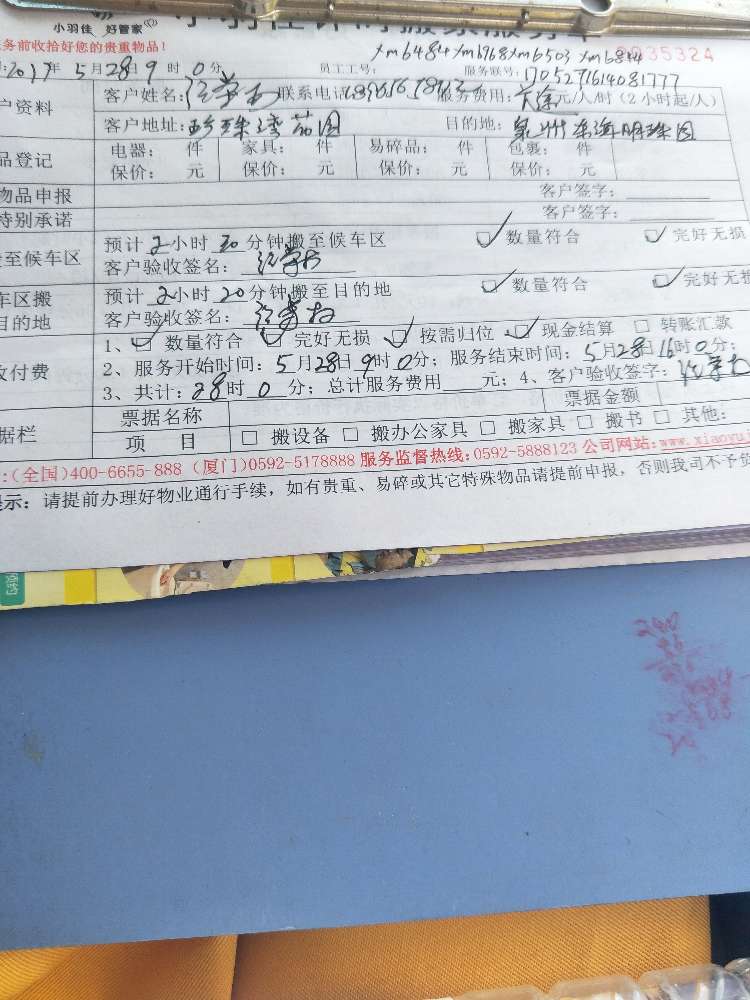 小羽佳 好管家
务前收拾好您的贵重物品!
xm6484 xm6503 xm6844
035324
2017年5月28日9时0分 员工工号: 服务联号:
户资料 客户姓名: 联系电话 服务费用: 元/人/时(2小时起/人)
客户地址:珍珠湾花园 目的地:泉州东海明珠园
品登记 电器: 件 家具: 件 易碎品: 件 包裹: 件
保价: 元 保价: 元 保价: 元 保价: 元
物品申报 客户签字:
特别承诺 客户签字:
至候车区 预计2小时30分钟搬至候车区 数量符合 完好无损
客户验收签名:
车区搬 预计2小时20分钟搬至目的地 数量符合 完好无损
目的地 客户验收签名:
1、 数量符合 完好无损 按需归位 现金结算 转账汇款
付费 2、服务开始时间:5月28日9时0分; 服务结束时间:5月28日16时0分;
3、共计:28时0分; 总计服务费用 元; 4、客户验收签字:
票据名称 票据金额
据栏 项 目 搬设备 搬办公家具 搬家具 搬书 其他:
:(全国)400-6655-888 (厦门)0592-5178888 服务监督热线:0592-5888123 公司网站:www.xiaoyuj
提示: 请提前办理好物业通行手续,如有贵重、易碎或其它特殊物品请提前申报,否则我司不予